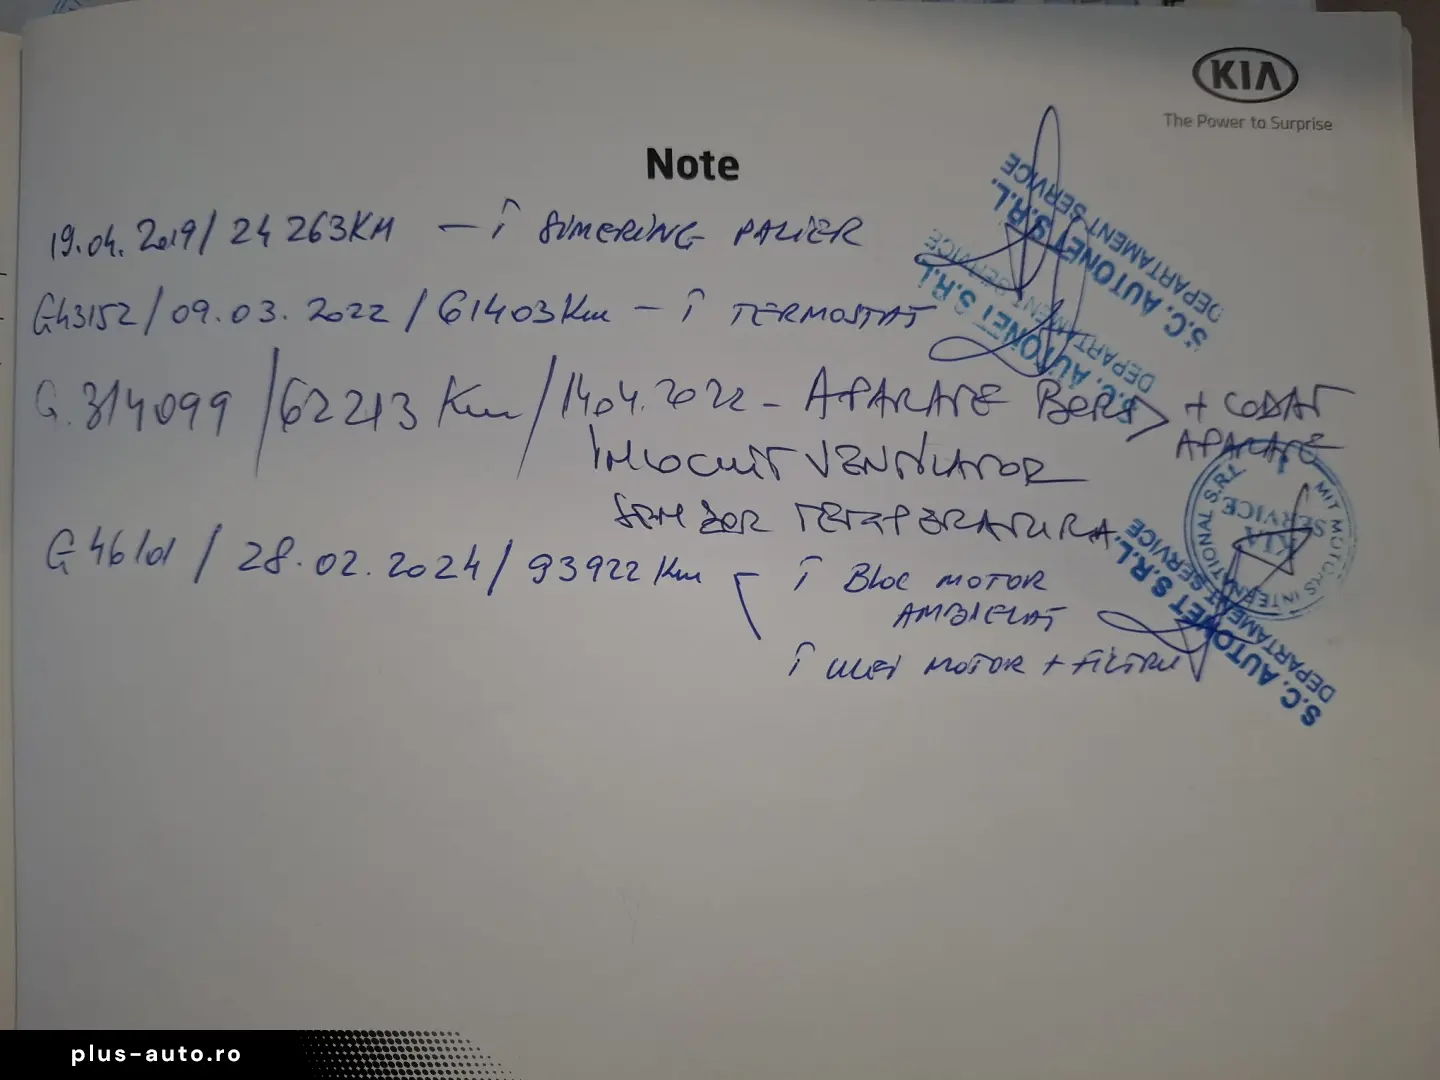 KIA
The Power to Surprise
Note
19.04.2019/ 24 263KM — Î SIMERING PALIER
G43152/09.03.2022/61403Km — Î TERMOSTAT
G.314099/62213 Km/14.04.2022 - APARATE BORD + CODAT
APARATE
ÎNLOCUIT VENTILATOR
SENZOR TEMPERATURA
/28.02.2024/93922 Km - Î BLOC MOTOR
AMBIELAT
Î ULEI MOTOR + FILTRU
S.C. AUTONET S.R.L.
DEPARTAMENT SERVICE
S.C. AUTONET S.R.L.
DEPARTAMENT SERVICE
MIT MOTORS INTERNATIONAL S.R.L.
KIA
SERVICE
1
S.C. AUTONET S.R.L.
DEPARTAMENT SERVICE
plus-auto.ro